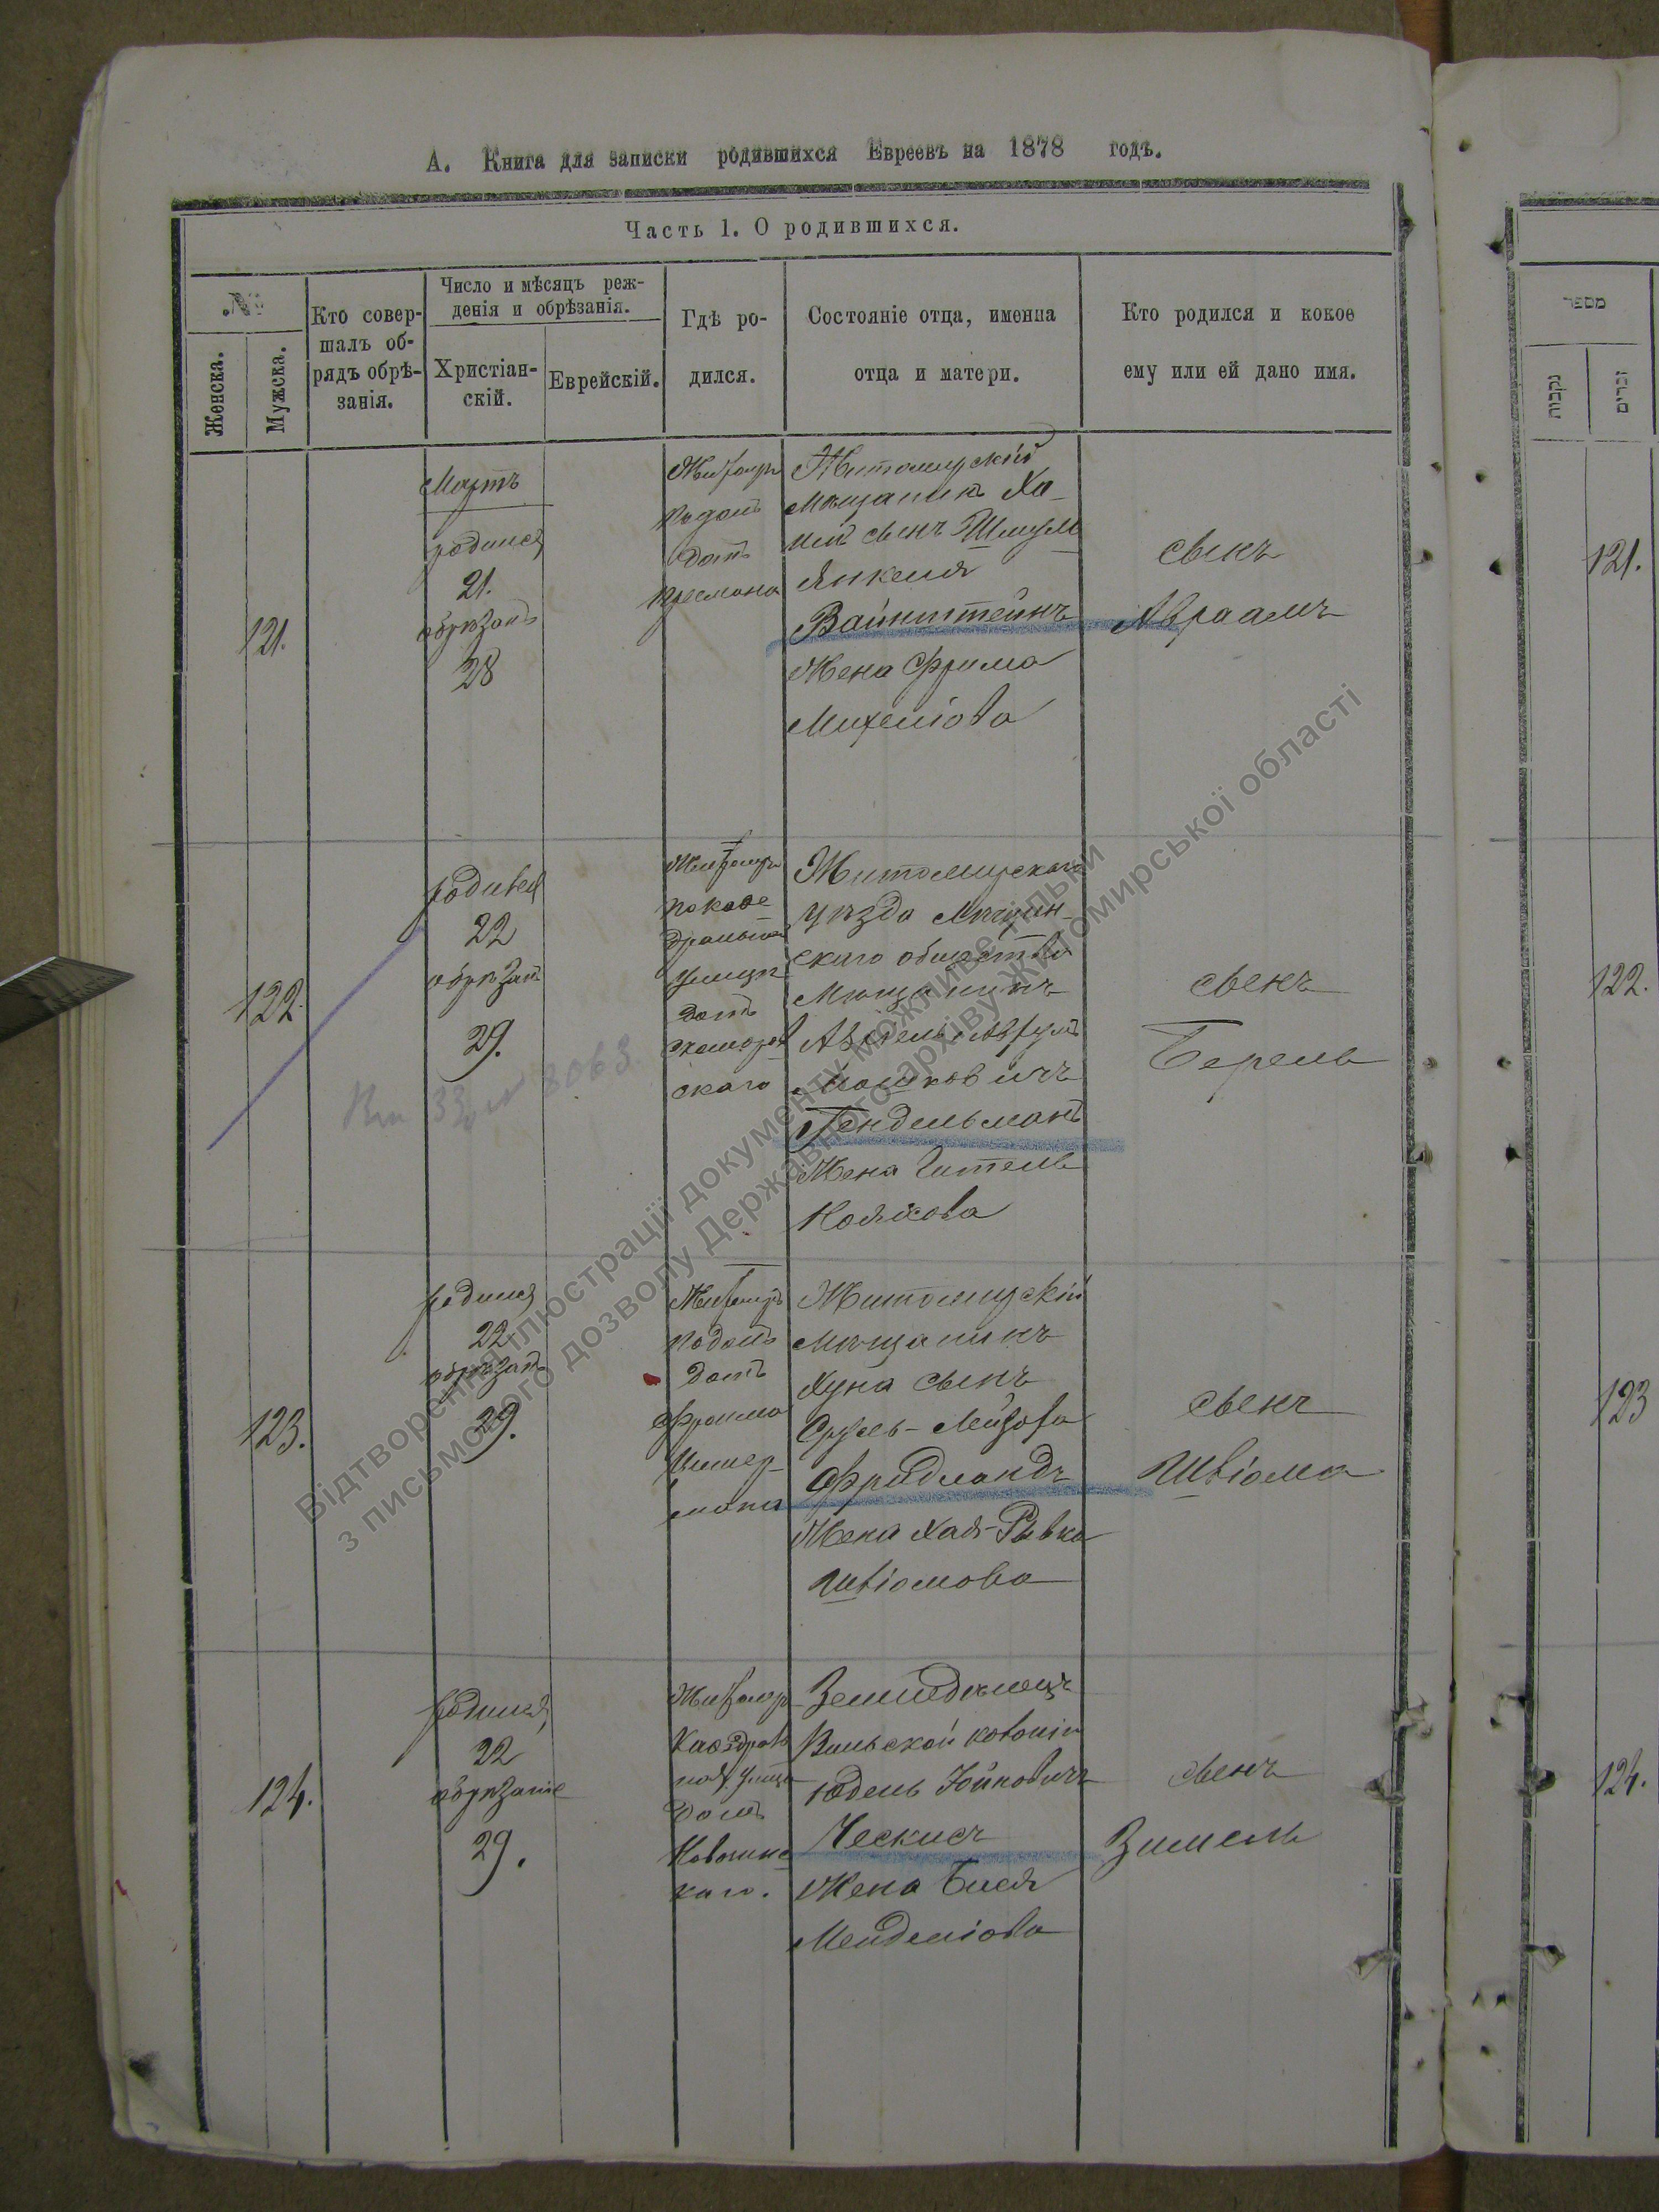 А. Книга для записки родившихся Евреевъ на 1878 годъ.
Часть 1. О родившихся.
№
Женска.
Мужска.
Кто совер-
шалъ об-
рядъ обрѣ-
занія.
Число и мѣсяцъ реж-
денія и обрѣзанія.
Христіан-
скій.
Еврейскій.
Гдѣ ро-
дился.
Состояніе отца, именна
отца и матери.
Кто родился и кокое
ему или ей дано имя.
121.
Мартъ
родился
21.
обрѣзанъ
28
Житомръ
домъ
Житомирскій
Мѣщанинъ Ха-
имъ сынъ Шмуля
Янкеля
Вайнштейнъ
Жена Фрима
Михеліова
сынъ
Авраамъ
122.
родился
22
обрѣзан
29.
Житомръ
по кафе-
дральной
улицѣ
домъ
скаго
Житомирскаго
уѣзда
скаго общества
Мѣщанинъ
Мошковичъ
Гендельманъ
Жена Гитель
сынъ
Берель
123.
родился
22
обрѣзанъ
29.
Житомръ
домъ
Фроима
Житомирскій
Мѣщанинъ
Хуна сынъ
Сруль-Лейзора
Фридландъ
Жена Хая-Рывка
Шліомова
сынъ
Шліома
124.
родился
22
обрѣзанie
29.
Житомр
ная улица
домъ
каго.
Земледѣлецъ
Вильской колоніи
Юдель Хайковичъ
Ческисъ
Жена Бися
Менделіова
сынъ
Зимель
מספר
נקבות
זכרים
121.
122.
123
124.
Відтворення ілюстрації документу можливе тільки
з письмового дозволу Державного архіву Житомирської області